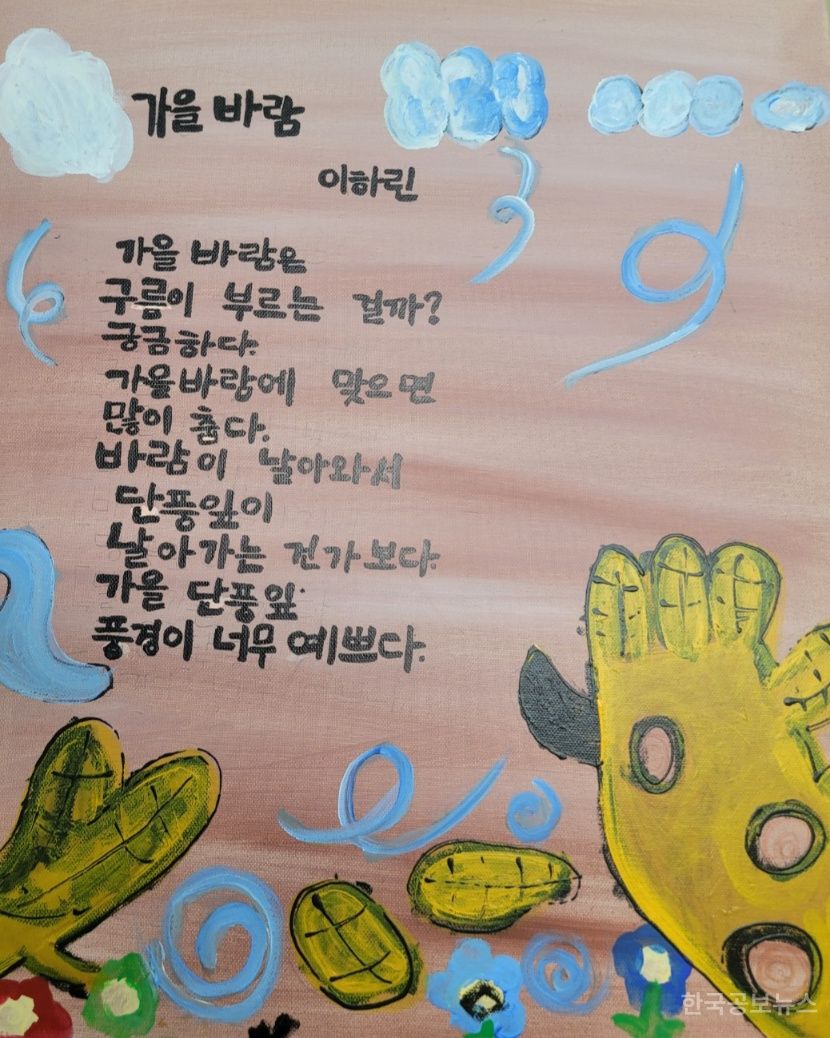 가을 바람
이하린
가을 바람은
구름이 부르는 걸까?
궁금하다.
가을바람에 맞으면
많이 춥다.
바람이 날아와서
단풍잎이
날아가는 건가보다.
가을 단풍잎
풍경이 너무 예쁘다.
한국공보뉴스